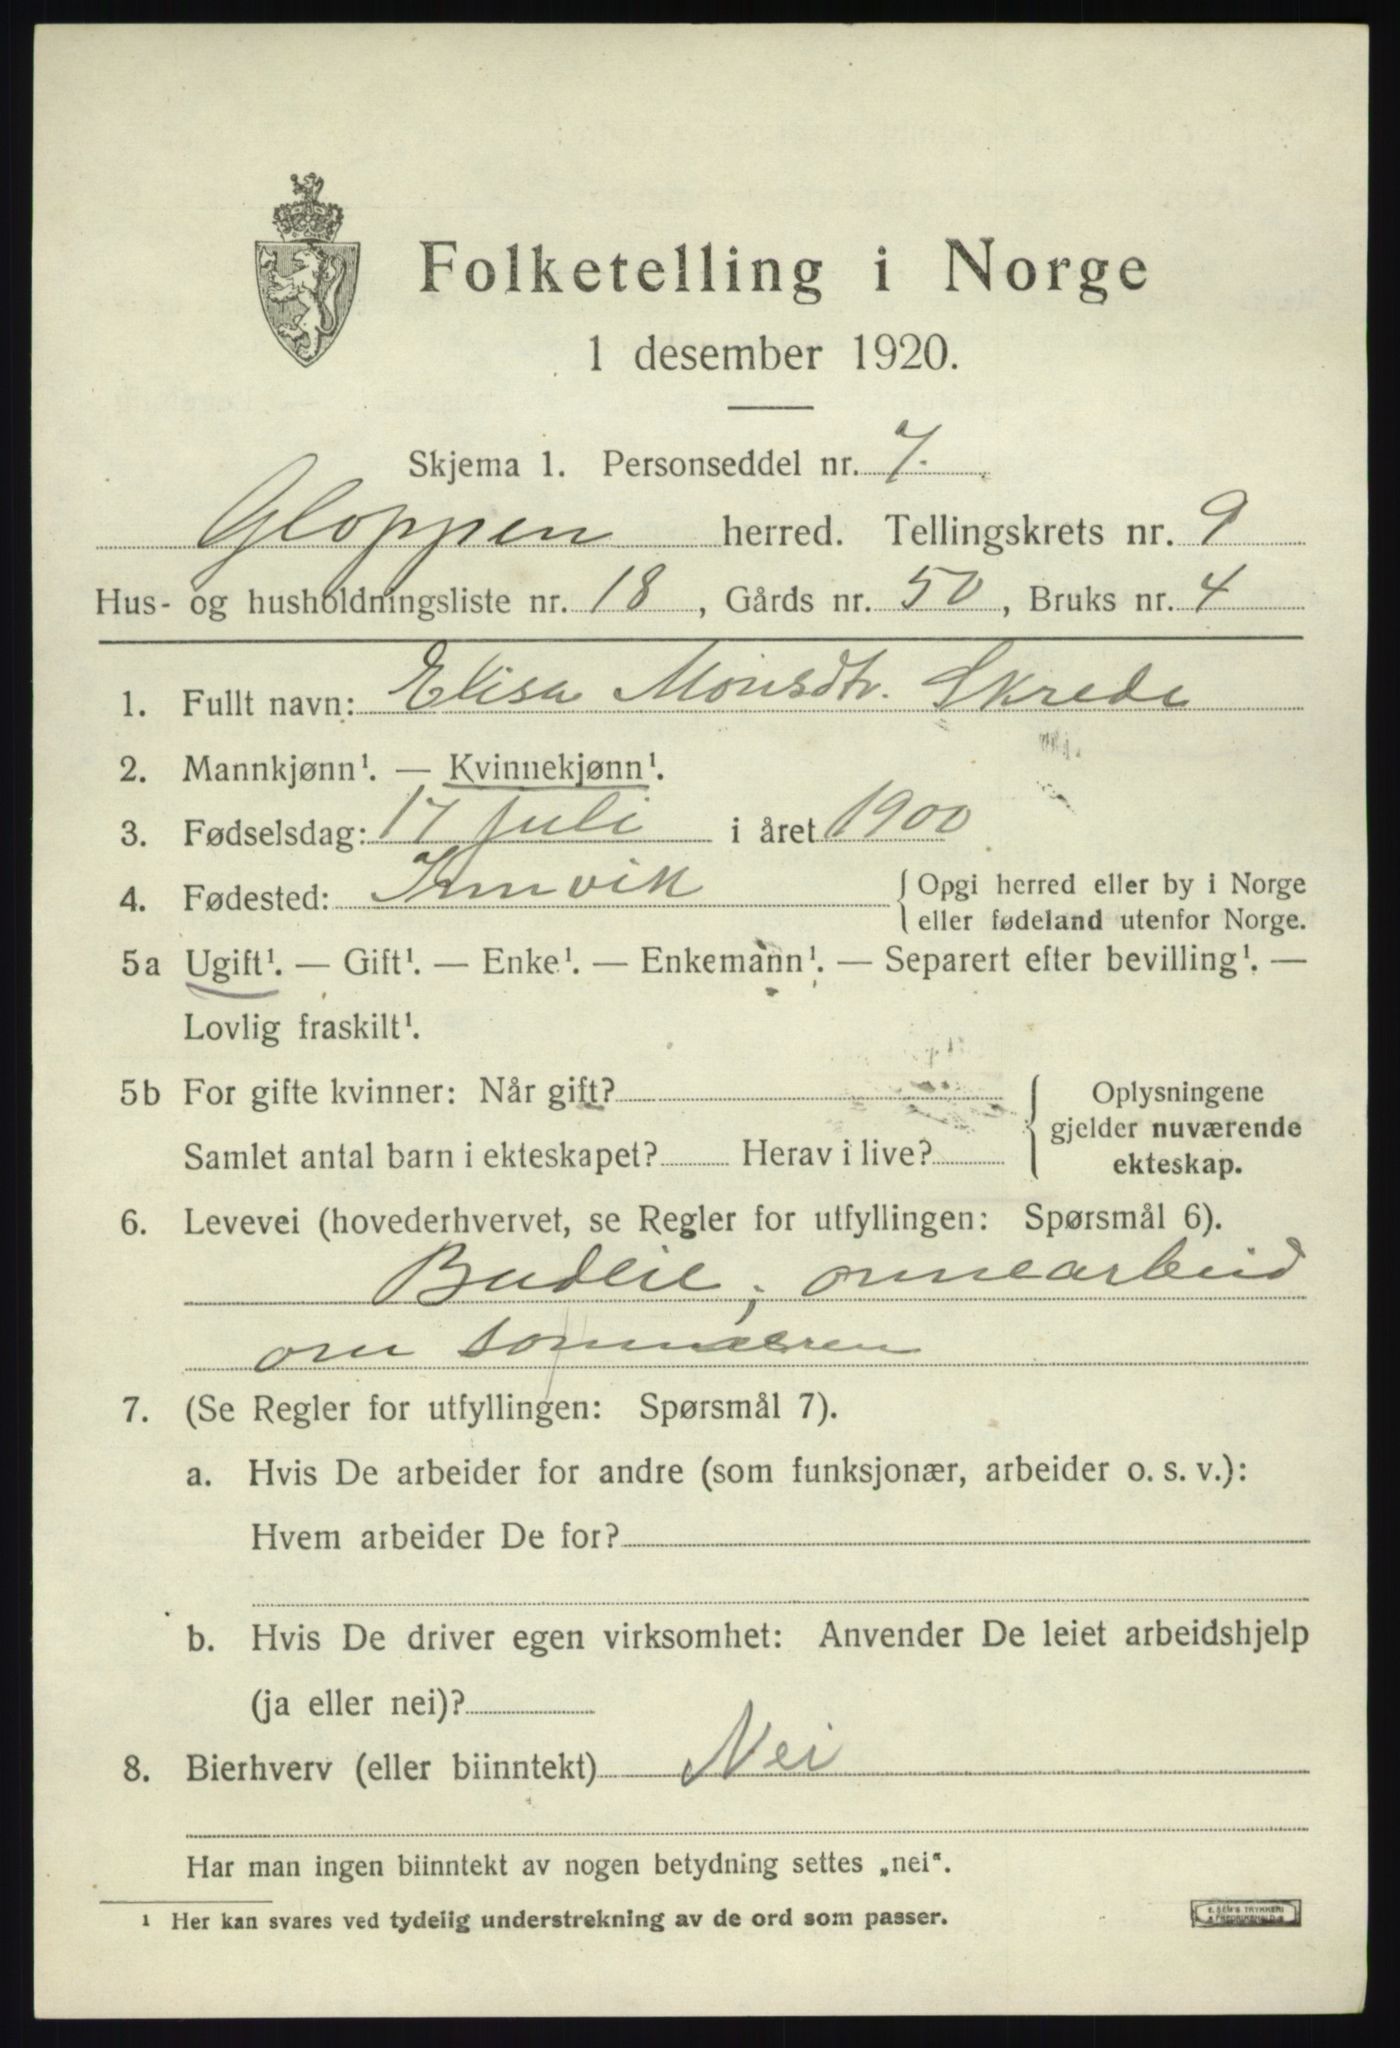 Folketelling i Norge
1 desember 1920.
Skjema 1. Personseddel nr. 7.
Gloppen herred. Tellingskrets nr. 9
Hus- og husholdningsliste nr. 18, Gårds nr. 50, Bruks nr. 4
1. Fullt navn: Elisa Monsdtr. Skrede
2. Mannkjønn¹. — Kvinnekjønn¹.
3. Fødselsdag: 17 juli i året 1900
4. Fødested: Innvik { Opgi herred eller by i Norge
eller fødeland utenfor Norge.
5a Ugift¹. — Gift¹. — Enke¹. — Enkemann¹. — Separert efter bevilling¹. —
Lovlig fraskilt¹.
5b For gifte kvinner: Når gift?
Samlet antal barn i ekteskapet? Herav i live?
Oplysningene
gjelder nuværende
ekteskap.
6. Levevei (hovederhvervet, se Regler for utfyllingen: Spørsmål 6).
Budeie; onnearbeid
om sommeren
7. (Se Regler for utfyllingen: Spørsmål 7).
a. Hvis De arbeider for andre (som funksjonær, arbeider o. s. v.):
Hvem arbeider De for?
b. Hvis De driver egen virksomhet: Anvender De leiet arbeidshjelp
(ja eller nei)?
8. Bierhverv (eller biinntekt) Nei
Har man ingen biinntekt av nogen betydning settes „nei“.
¹ Her kan svares ved tydelig understrekning av de ord som passer.
E. SEM'S TRYKKERI
FREDRIKSHALD